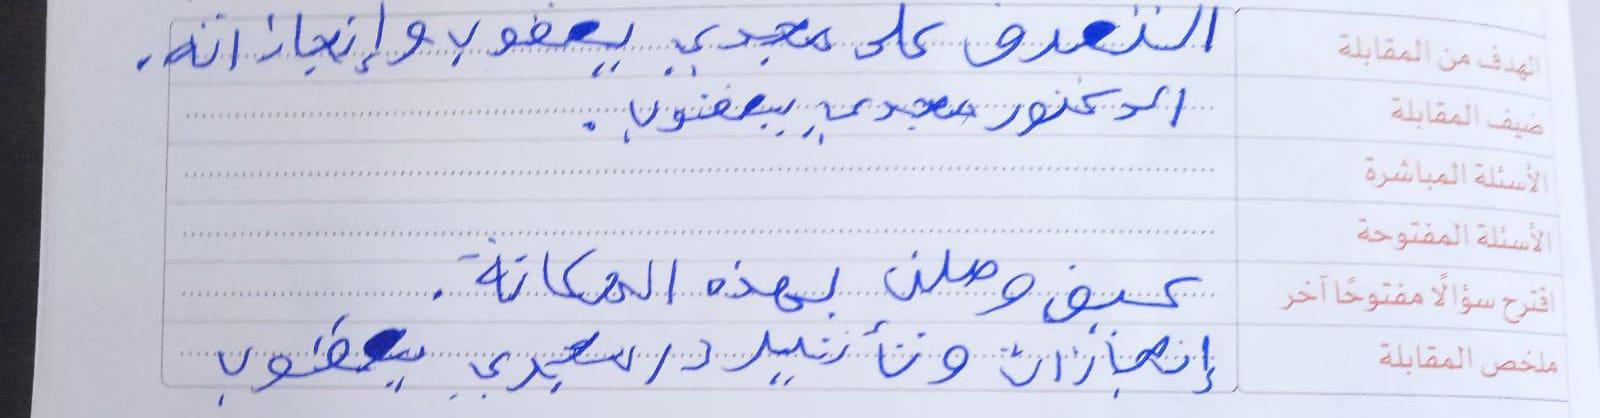 الهدف من المقابلة التعرف على مجدي يعقوب وإنجازاته.
ضيف المقابلة الدكتور مجدي يعقوب.
الأسئلة المباشرة
الأسئلة المفتوحة
اقترح سؤالًا مفتوحًا آخر كيف وصلت لهذه المكانة.
ملخص المقابلة إنجازات وتأثير د/مجدي يعقوب